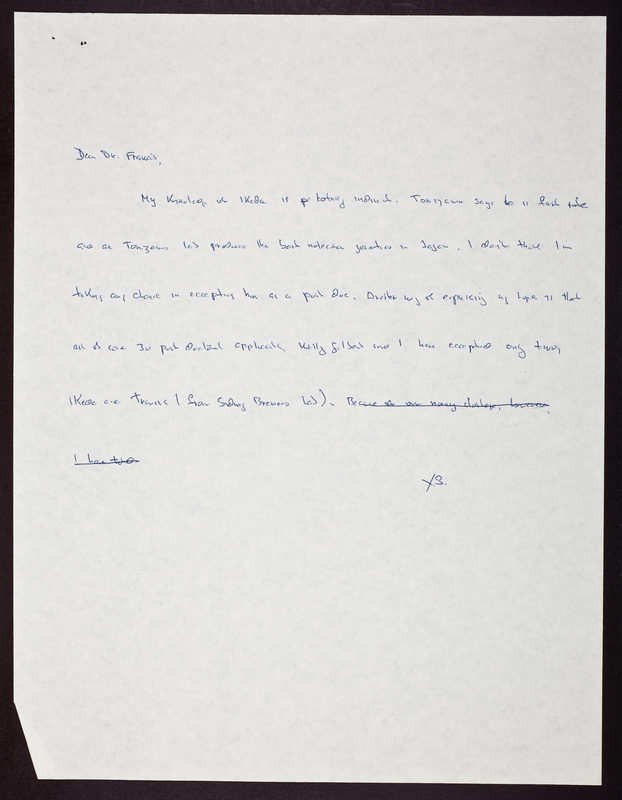 Dear Dr. Francis,
My Knowledge of IKeda is totally indirect. Tomizawa says he is first rate
and as Tomizawas lab produces the best molecular genetics in Japan, I don't think I'm
taking any chance in accepting him as a post doc. Another way of expressing my hope is that
out of some 30 post doctoral applicants, Wally Gilbert and I have accepted only two,
IKeda and Travers (from Sydney Brenners lab). Because of our many changes, however,
I have
YS.